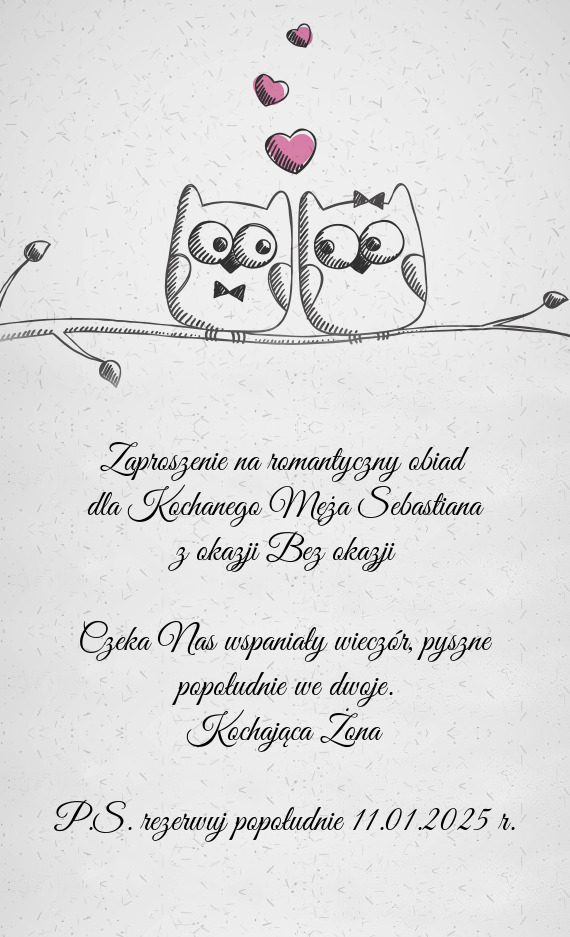 Zaproszenie na romantyczny obiad
dla Kochanego Męża Sebastiana
z okazji Bez okazji
Czeka Nas wspaniały wieczór, pyszne
popołudnie we dwoje.
Kochająca Żona
P.S. rezerwuj popołudnie 11.01.2025 r.